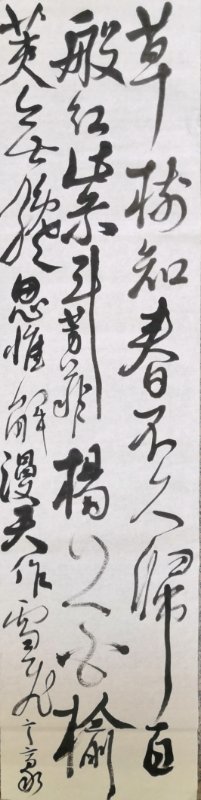 草樹知春不久歸百
般紅紫斗芳菲楊花榆
荚無才思惟解漫天作雪飛